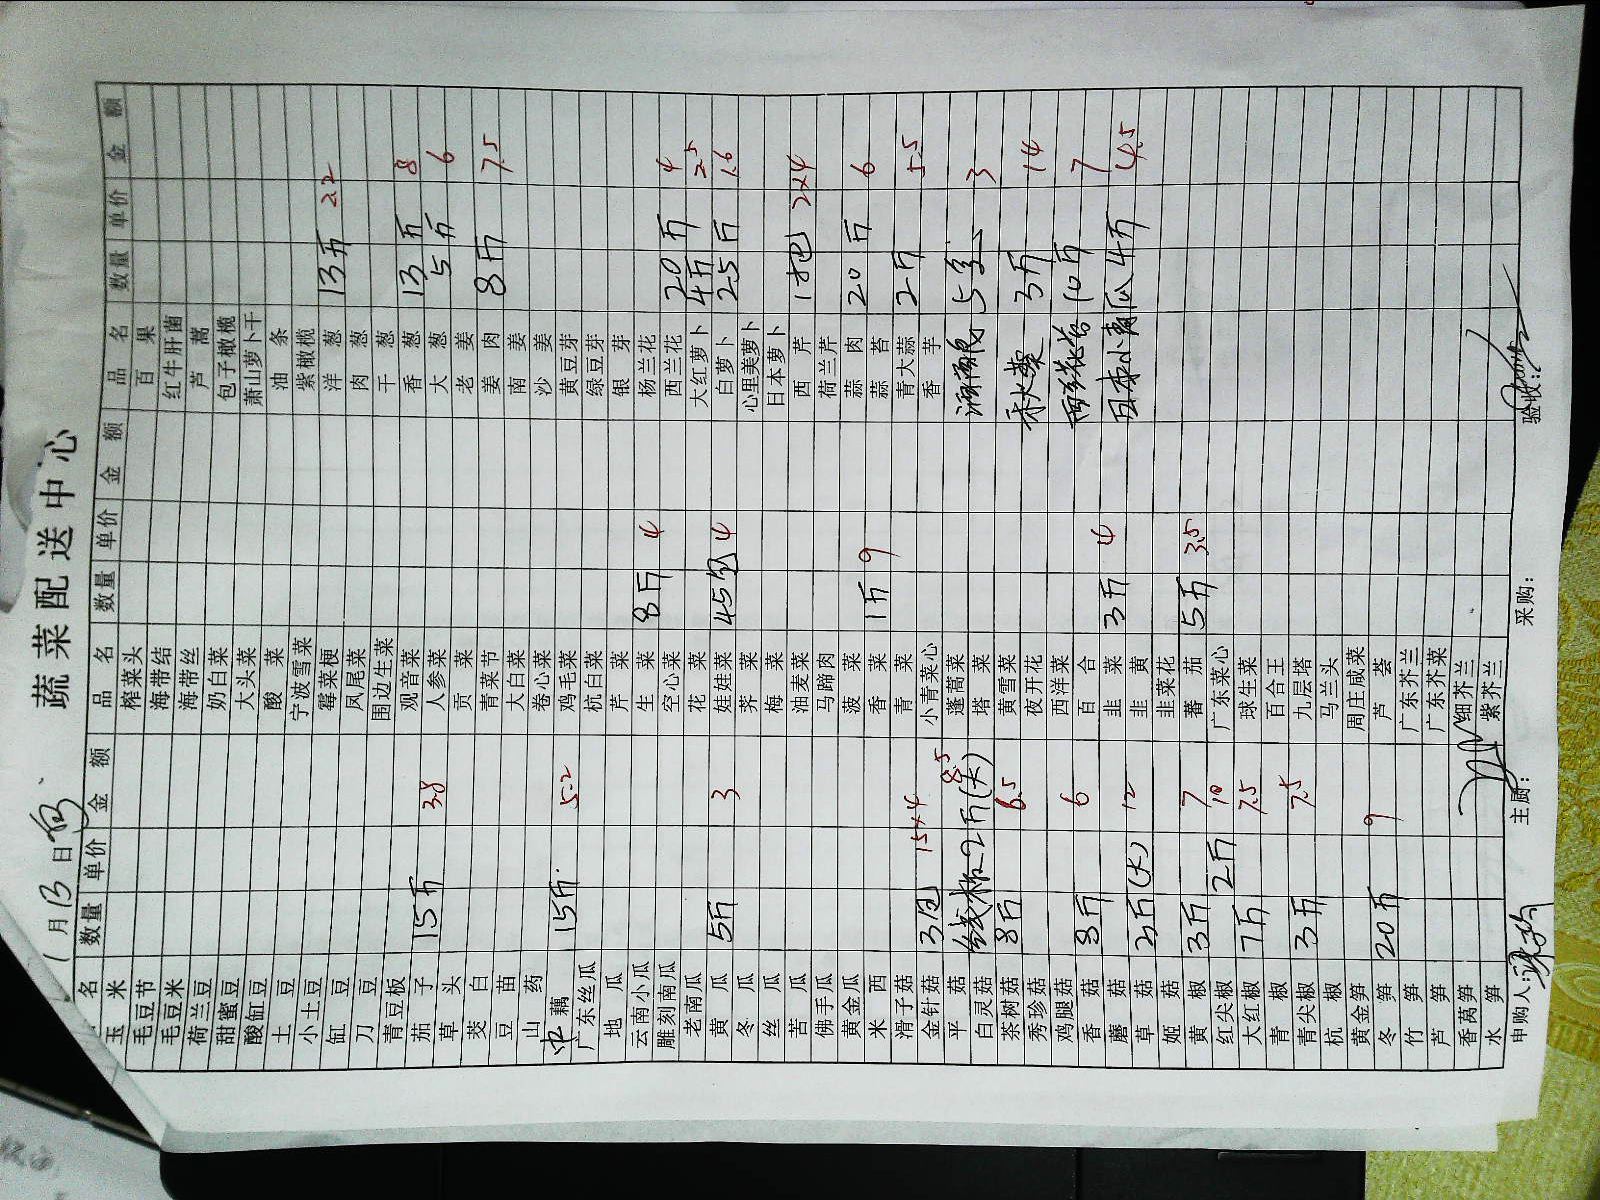 蔬菜配送中心
1月13日
品名 数量 单价 金额 品名 数量 单价 金额 品名 数量 单价 金额
玉米 榨菜头 百果
毛豆节 海带结 红牛肝菌
毛豆米 海带丝 芦蒿
荷兰豆 奶白菜 包子橄榄
甜蜜豆 大头菜 萧山萝卜干
酸缸豆 酸菜 油条
土豆 宁波雪菜 紫橄榄
小土豆 霉菜梗 洋葱 13斤 2.2
缸豆 凤尾菜 肉葱
刀豆 围边生菜 干葱
青豆板 观音菜 香葱 13斤 8
茄子 15斤 3.8 人参菜 大葱 5斤 6
草头 贡菜 老姜
茭白 青菜节 姜肉 8斤 7.5
豆苗 大白菜 南姜
山药 卷心菜 沙姜
中藕 15斤 5.2 鸡毛菜 黄豆芽
广东丝瓜 杭白菜 绿豆芽
地瓜 芹菜 银芽
云南小瓜 生菜 8斤 4 杨兰花
雕刻南瓜 空心菜 西兰花 20斤 4
老南瓜 花菜 大红萝卜 4斤 2.5
黄瓜 5斤 3 娃娃菜 45包 4 白萝卜 25斤 1.6
冬瓜 荠菜 心里美萝卜
丝瓜 梅菜 日本萝卜
苦瓜 油麦菜 西芹 1把 2x4
佛手瓜 马蹄肉 荷兰芹
黄金瓜 菠菜 蒜肉 20斤 6
米西 香菜 1斤 9 蒜苔
滑子菇 青菜 青大蒜 2斤 5.5
金针菇 3包 15x4 小青菜心 香芋
平菇 线椒2斤(大) 8.5 蓬蒿菜 5盒 3
白灵菇 塔菜
茶树菇 8斤 6.5 黄雪菜 秋葵 3斤 14
秀珍菇 夜开花
鸡腿菇 西洋菜 西兰花苔 10斤 7
香菇 8斤 6 百合
蘑菇 韭菜 3斤 4 日本小青瓜 4斤 4.5
草菇 2斤(大) 12 韭黄
姬菇 韭菜花
黄椒 3斤 7 蕃茄 5斤 3.5
红尖椒 2斤 10 广东菜心
大红椒 7斤 7.5 球生菜
青椒 百合王
青尖椒 3斤 7.5 九层塔
杭椒 马兰头
黄金笋 周庄咸菜
冬笋 20斤 9 芦荟
竹笋 广东芥兰
芦笋 广东芥菜
香莴笋 细芥兰
水笋 紫芥兰
申购人: 主厨: 采购: 验收: